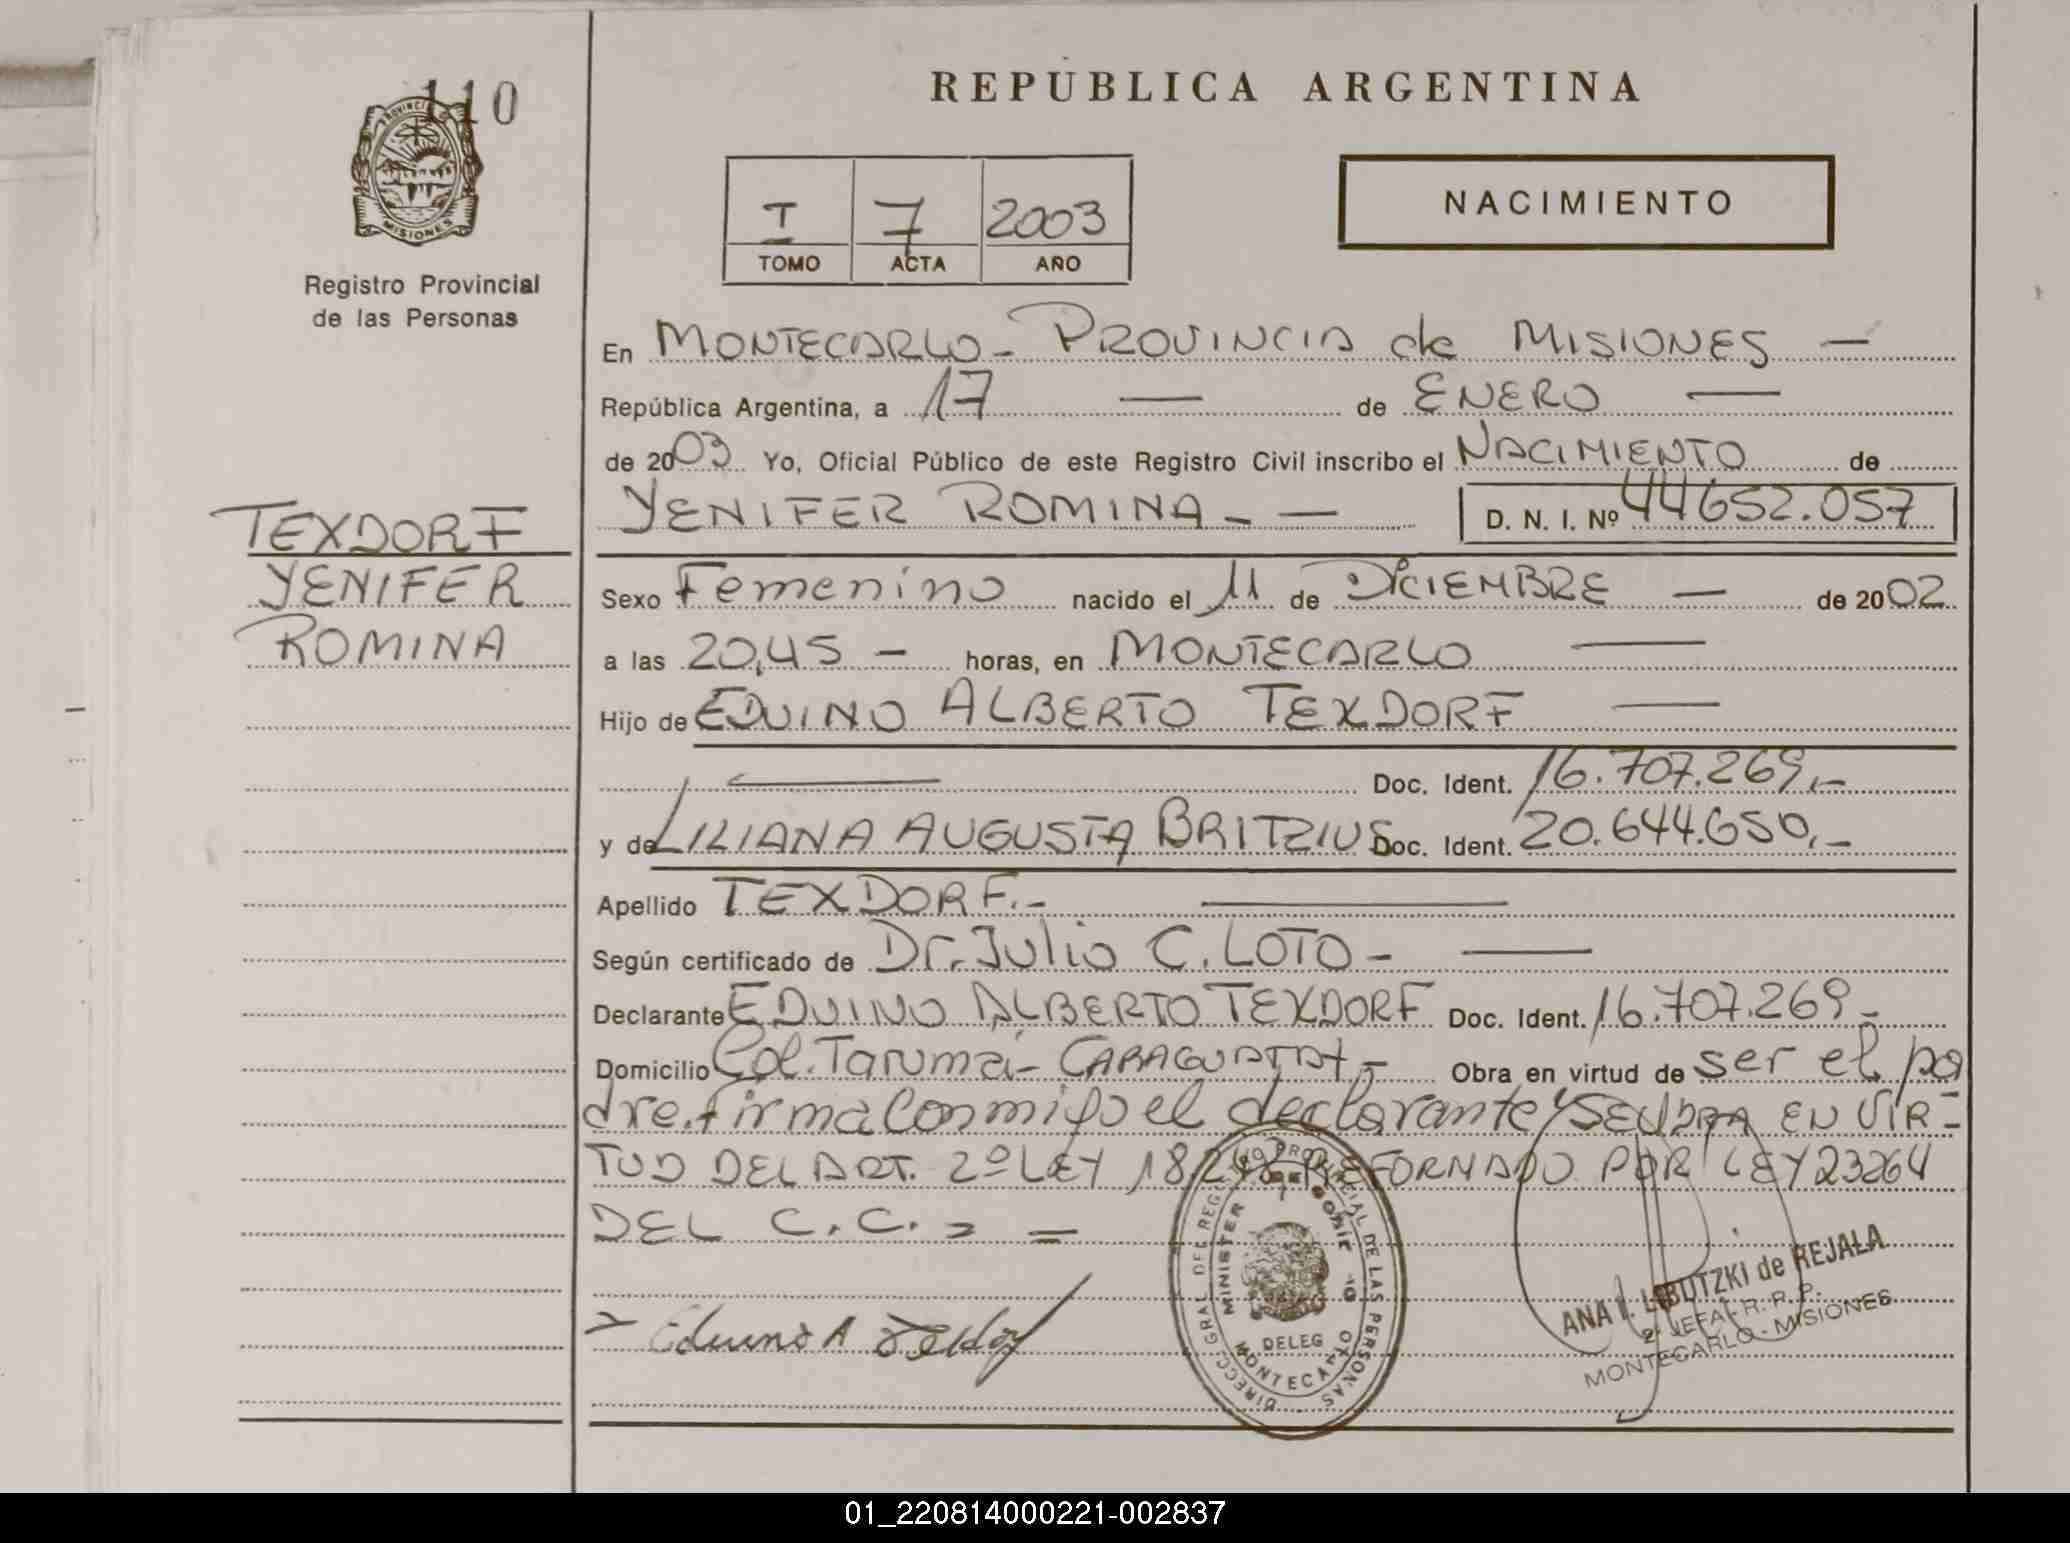 110
PROVINCIA
MISIONES
Registro Provincial
de las Personas
REPUBLICA ARGENTINA
NACIMIENTO
I 7 2003
TOMO ACTA AÑO
En MONTECARLO - PROVINCIA de MISIONES —
República Argentina, a 17 — de ENERO —
de 2003 Yo, Oficial Público de este Registro Civil inscribo el NACIMIENTO de
YENIFER ROMINA - — D. N. I. Nº 44652.057
TEXDORF
YENIFER
ROMINA
Sexo Femenino nacido el 11 de DICIEMBRE — de 2002
a las 20,45 — horas, en MONTECARLO —
Hijo de EDUINO ALBERTO TEXDORF —
— Doc. Ident. 16.707.269,-
y de LILIANA AUGUSTA BRITZIUS Doc. Ident. 20.644.650,-
Apellido TEXDORF.- —
Según certificado de Dr. Julio C. LOTO - —
Declarante EDUINO ALBERTO TEXDORF Doc. Ident. 16.707.269 -
Domicilio Col. Tarumá - CARAGUATAY - Obra en virtud de ser el pa
dre. firma Conmigo el declarante Y SELLADRA EN VIR-
TUD DEL ART. 2º LEY 18.248 REFORMADO POR LEY 23264
DEL C.C. =
Eduino A Texdorf
DIRECC. GRAL DEL REGISTRO PROVINCIAL DE LAS PERSONAS
DELEG
MONTECARLO
ANA I. LIBUTZKI de REJALA
2º JEFA - R. P. P.
MONTECARLO - MISIONES
01_220814000221-002837